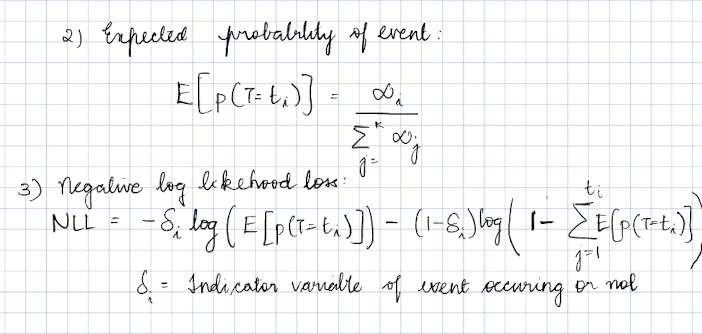 2) Expected probability of event :
E[p(T=t_i)] = ∝_i / Σ_{j=}^{k} ∝_j
3) Negative log likehood loss:
NLL = -δ_i log(E[p(T=t_i)]) - (1-δ_i) log(1- Σ_{j=1}^{t_i} E[p(T=t_i)])
δ_i = Indicator variable of event occuring or not